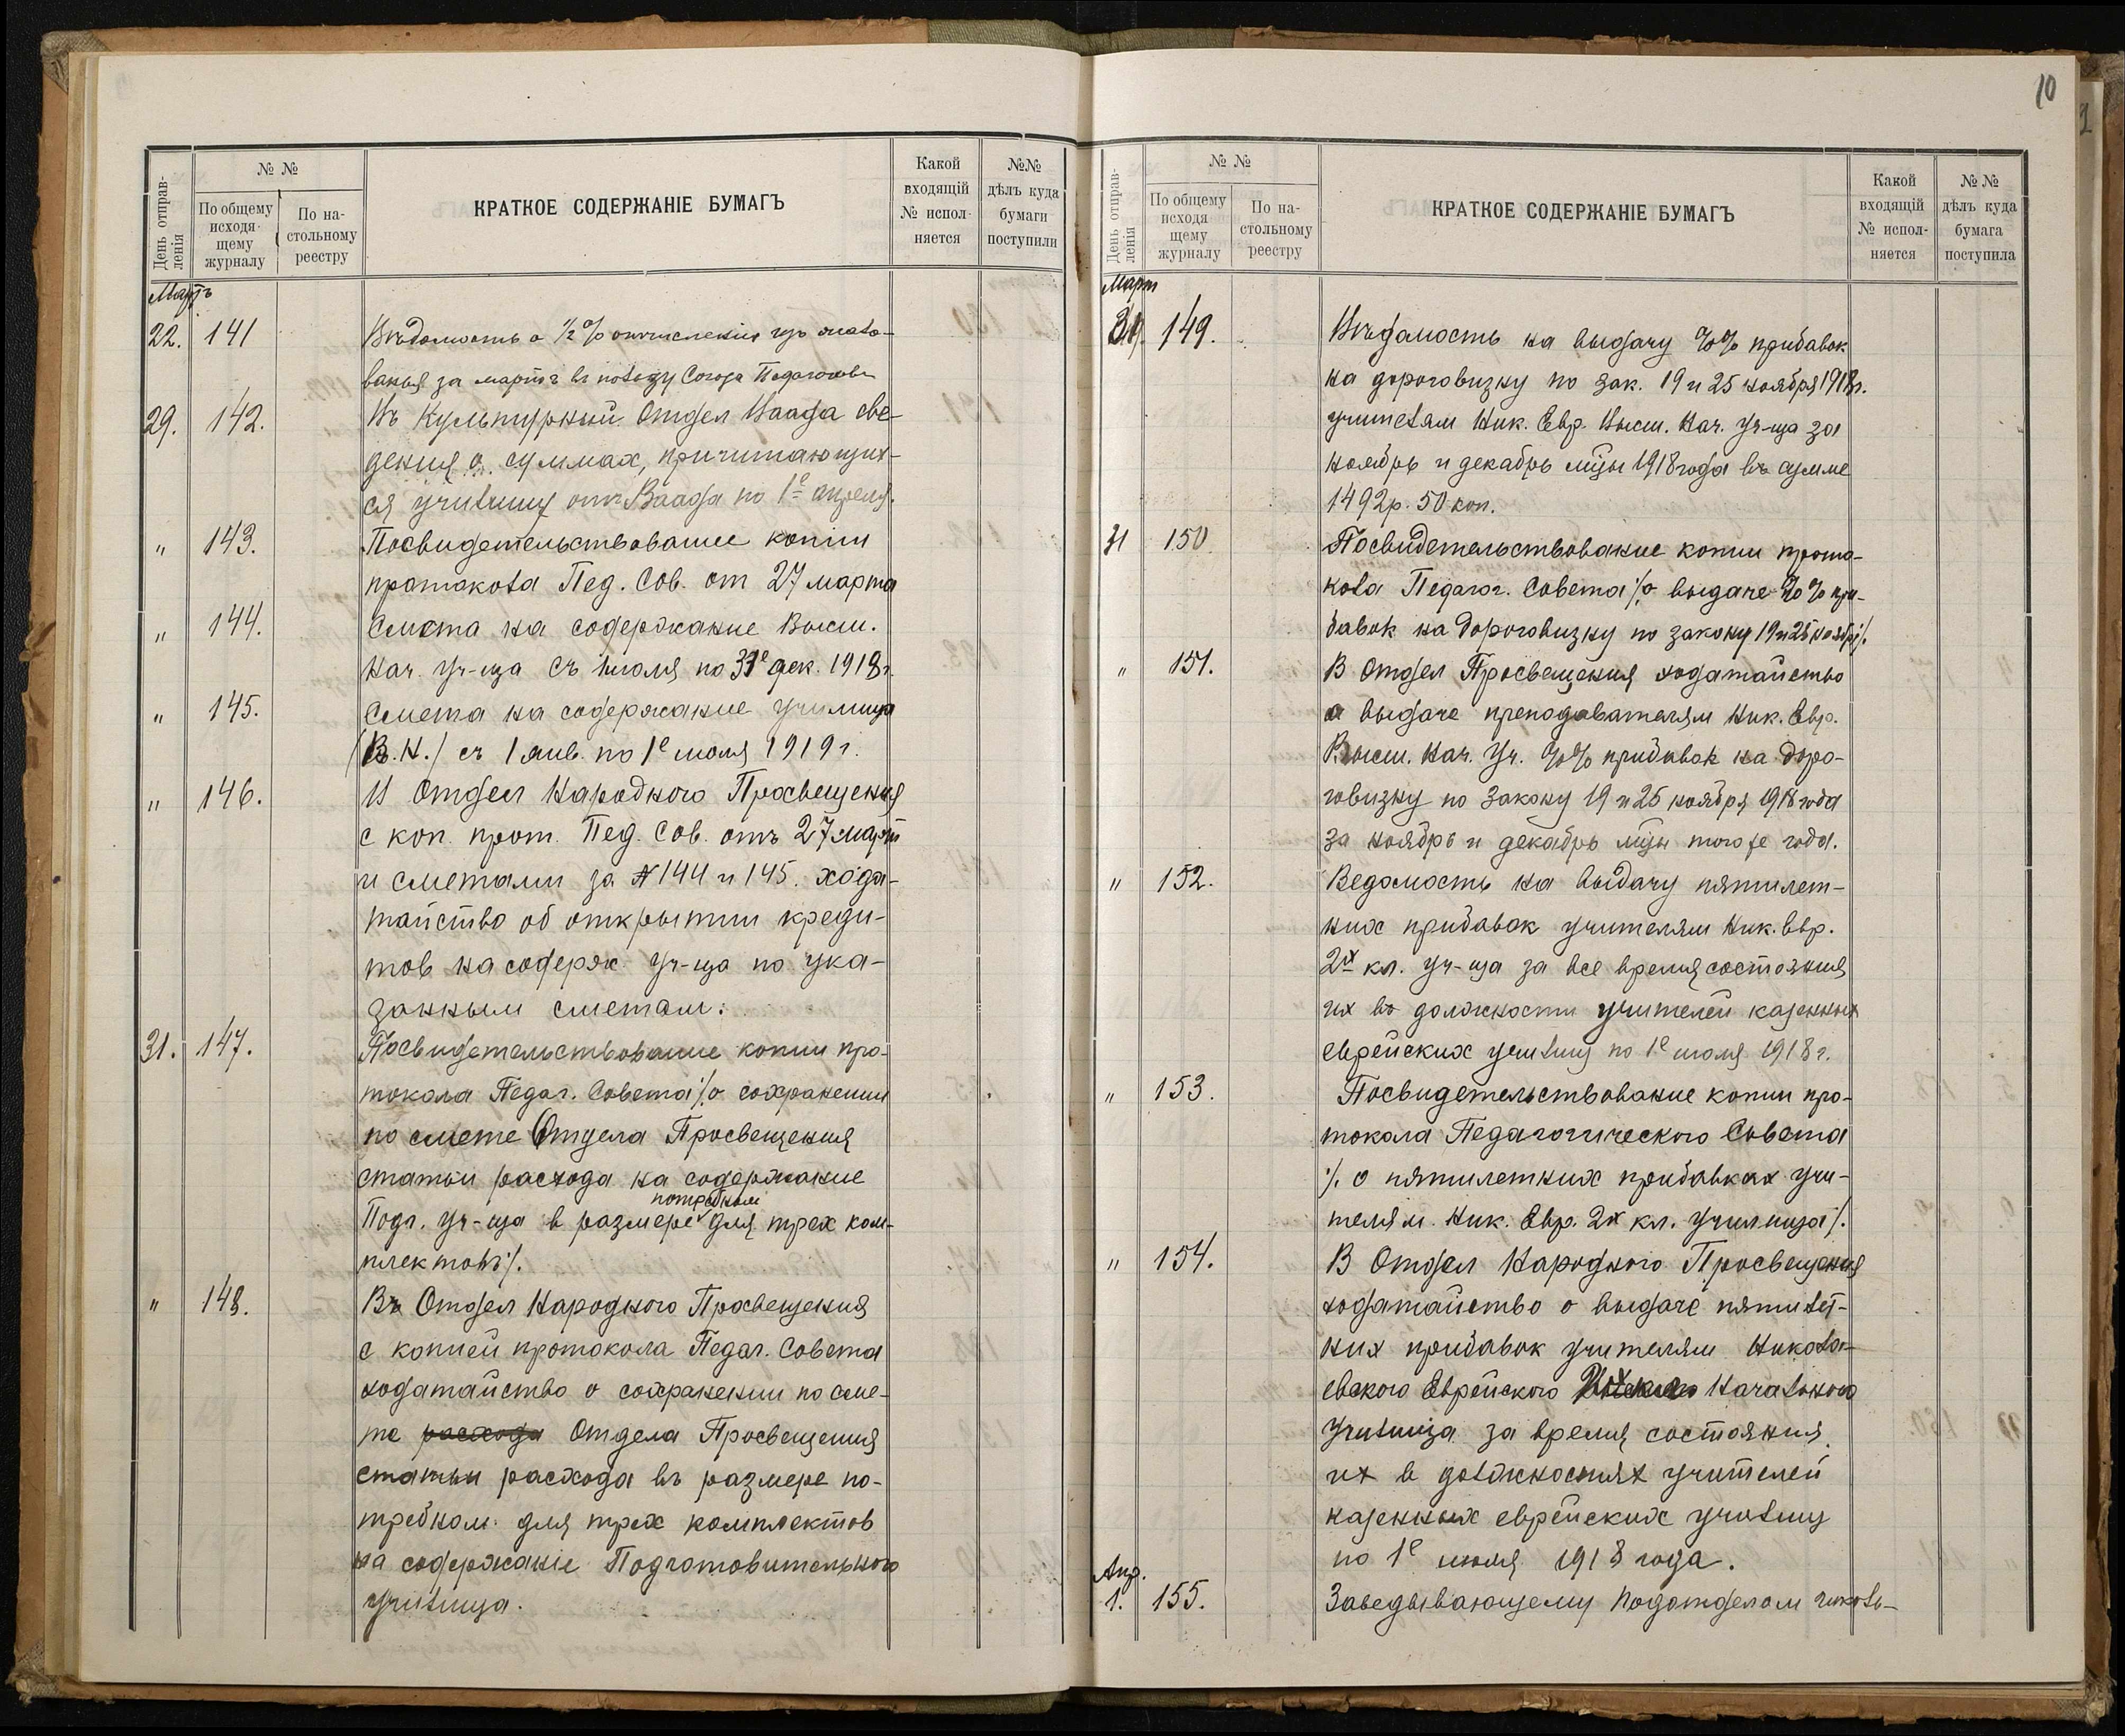 10
День отправления
№ №
По общему исходящему журналу
По настольному реестру
КРАТКОЕ СОДЕРЖАНІЕ БУМАГЪ
Какой входящій № исполняется
№№ дѣлъ куда бумаги поступили
Мартъ
22. 141 Вѣдомость о ½ % отчисленіи изъ жало-
ванья за мартъ въ пользу Союза Педагоговъ
29. 142. Въ Культурный Отдел Ваада све-
дения о суммах, причитающих-
ся училищу отъ Ваада по 1е апреля.
" 143. Посвидетельствование копии
протокола Пед. Сов. от 27 марта
" 144. Смета на содержание Высш.
Нач. Уч-ща съ июля по 31е дек. 1918 г.
" 145. Смета на содержание училища
(В. Н.) съ 1 янв. по 1е июля 1919 г.
" 146. В Отдел Народного Просвещения
с коп. прот. Пед. Сов. отъ 27 март
и сметами за № 144 и 145. хода-
тайство об открытии креди-
тов на содерж. Уч-ща по ука-
занным сметам.
31. 147. Посвидетельствование копии про-
токола Педаг. Совета ∕. о сохранении
по смете Отдела Просвещения
статьи расхода на содержание
потребном
Подг. Уч-ща в размере для трех ком-
плектовъ ∕.
" 148. Въ Отдел Народного Просвещения
с копией протокола Педаг. Совета
ходатайство о сохранении по сме-
те расхода Отдела Просвещения
статьи расхода въ размере по-
требном для трех комплектов
на содержаніе Подготовительного
училища.
День отправления
№ №
По общему исходящему журналу
По настольному реестру
КРАТКОЕ СОДЕРЖАНІЕ БУМАГЪ
Какой входящій № исполняется
№ № дѣлъ куда бумага поступила
Март
31. 149. Вѣдомость на выдачу %% прибавок
на дороговизну по зак. 19 и 25 ноября 1918 г.
учителям Ник. Евр. Высш. Нач. Уч-ща за
ноябрь и декабрь м-цы 1918 года въ сумме
1492 р. 50 коп.
31 150. Посвидетельствование копии прото-
кола Педагог. Совета ∕. о выдаче %% при-
бавок на дороговизну по закону 19 и 25 ноябр. ∕.
" 151. В Отдел Просвещения ходатайство
о выдаче преподавателям Ник. Евр.
Высш. Нач. Уч. %% прибавок на доро-
говизну по закону 19 и 25 ноября 1918 года
за ноябрь и декабрь м-цы того же года.
" 152. Ведомость на выдачу пятилет-
них прибавок учителям Ник. Евр.
2х кл. Уч-ща за все время состояния
их въ должности учителей казенных
еврейских училищ по 1е июля 1918 г.
" 153. Посвидетельствование копии про-
токола Педагогического Совета
∕. о пятилетних прибавках учи-
телям Ник. Евр. 2х кл. Училища ∕.
" 154. В Отдел Народного Просвещения
ходатайство о выдаче пятилет-
них прибавок учителям Никола-
евского Еврейского Начального
Училища за время состояния
их в должностях учителей
казенных еврейских училищ
по 1е июля 1918 года.
Апр.
1. 155. Заведывающему Подотделом